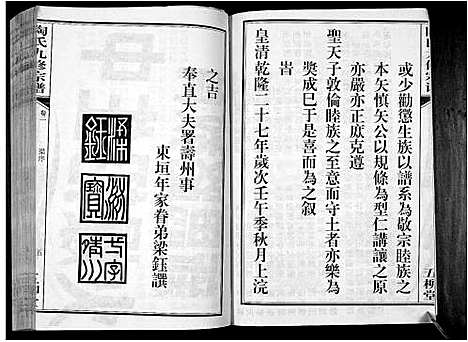 或少勸懲生族以譜系為敬宗睦族之
本矢慎矢公以規條為型仁講讓之原
亦嚴亦正庶克遵
聖天子敦倫睦族之至意而守土者亦樂為
獎成巳于是喜而為之叙
旹
皇清乾隆二十七年歲次壬午季秋月上浣
五柳堂
陶氏九修宗譜
卷一
梁序
五
之吉
奉直大夫署壽州事
東垣年家眷弟梁鈺譔
梁鈺